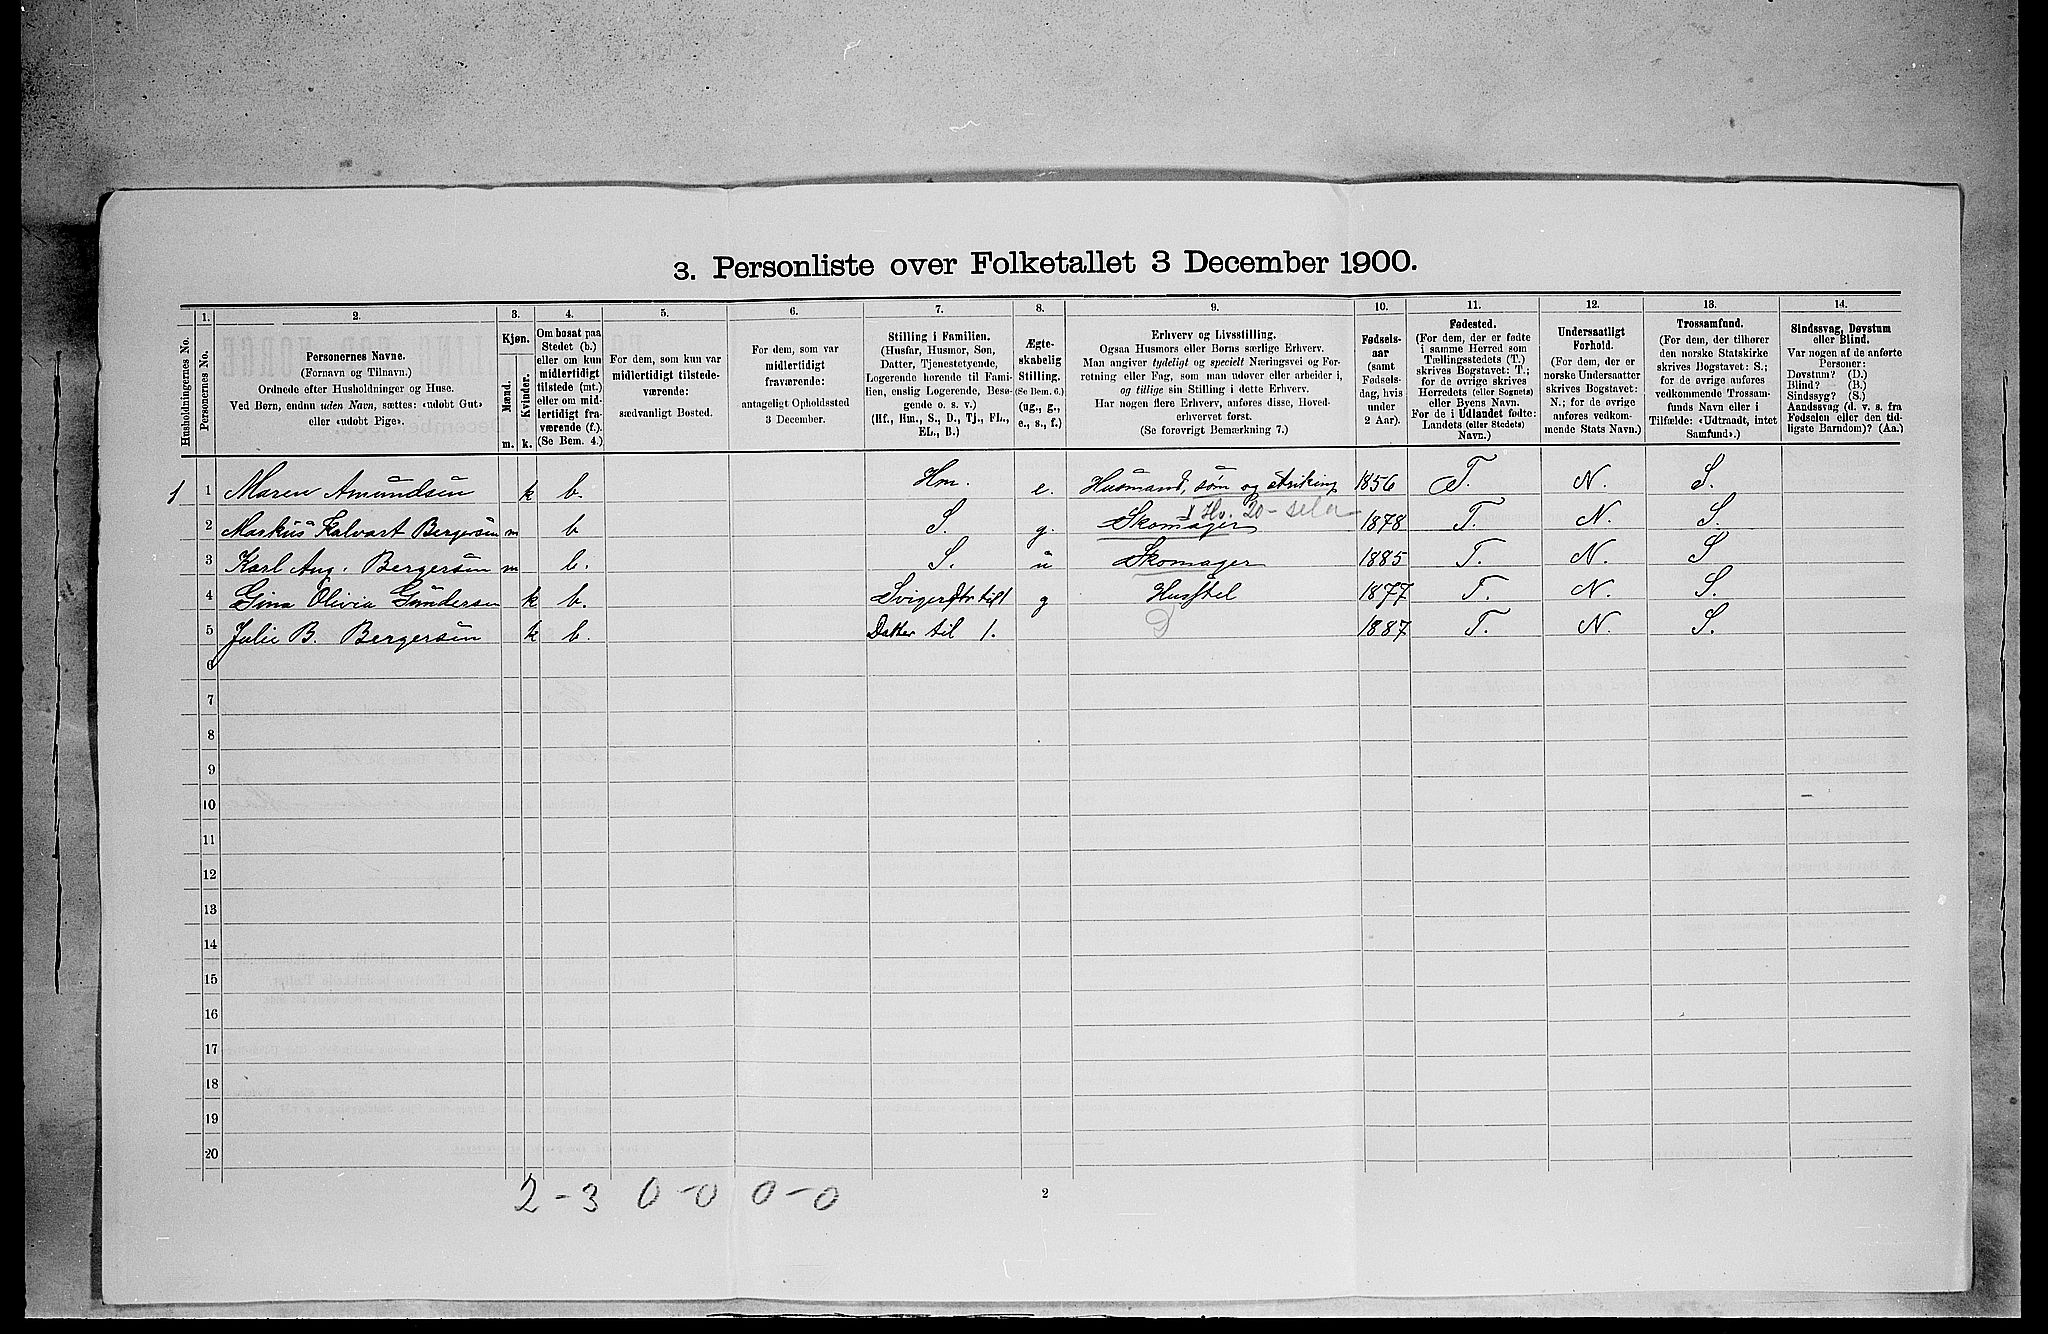 3. Personliste over Folketallet 3 December 1900.
1. 2. 3. 4. 5. 6. 7. 8. 9. 10. 11. 12. 13. 14.
Husholdningernes No.
Personernes No.
Personernes Navne.
(Fornavn og Tilnavn.)
Ordnede efter Husholdninger og Huse.
Ved Børn, endnu uden Navn, sættes: «udøbt Gut»
eller «udøbt Pige».
Kjøn.
Mænd.
Kvinder.
m. k.
Om bosat paa
Stedet (b.)
eller om kun
midlertidigt
tilstede (mt.)
eller om mid-
lertidigt fra-
værende (f.).
(Se Bem. 4.)
For dem, som kun var
midlertidigt tilstede-
værende:
sædvanligt Bosted.
For dem, som var
midlertidigt
fraværende:
antageligt Opholdssted
3 December.
Stilling i Familien.
(Husfar, Husmor, Søn,
Datter, Tjenestetyende,
Logerende hørende til Fami-
lien, enslig Logerende, Besø-
gende o. s. v.)
(Hf., Hm., S., D., Tj., FL.,
EL., B.)
Ægte-
skabelig
Stilling.
(Se Bem. 6.)
(ug., g.,
e., s., f.)
Erhverv og Livsstilling.
Ogsaa Husmors eller Børns særlige Erhverv.
Man angiver tydeligt og specielt Næringsvei og For-
retning eller Fag, som man udøver eller arbeider i,
og tillige sin Stilling i dette Erhverv.
Har nogen flere Erhverv, anføres disse, Hoved-
erhvervet først.
(Se forøvrigt Bemærkning 7.)
Fødsels-
aar
(samt
Fødsels-
dag, hvis
under
2 Aar).
Fødested.
(For dem, der er fødte
i samme Herred som
Tællingsstedets (T.)
skrives Bogstavet: T.;
for de øvrige skrives
Herredets (eller Sognets)
eller Byens Navn.
For de i Udlandet fødte:
Landets (eller Stedets)
Navn.)
Undersaatligt
Forhold.
(For dem, der er
norske Undersaatter
skrives Bogstavet:
N.; for de øvrige
anføres vedkom-
mende Stats Navn.)
Trossamfund.
(For dem, der tilhører
den norske Statskirke
skrives Bogstavet: S.;
for de øvrige anføres
vedkommende Trossam-
funds Navn eller i
Tilfælde: «Udtraadt, intet
Samfund».)
Sindssvag, Døvstum
eller Blind.
Var nogen af de anførte
Personer:
Døvstum? (D.)
Blind? (B.)
Sindssyg? (S.)
Aandssvag (d. v. s. fra
Fødselen eller den tid-
ligste Barndom)? (Aa.)
1 1 Maren Amundsen k b. Hm. e. Husmand, søm og strikking 1856 T. N. S.
20 - sela
2 Markus Halvart Bergersen m b S. g. Skomager 1878 T. N. S.
3 Karl Aug. Bergersen m b. S. u Skomager 1885 T. N. S
4 Gina Olivia Gundersen k b. Svigerdtr til 1 g Husstel 1877 T. N. S.
5 Julie B. Bergersen k b. Datter til 1. D 1887 T. N. S.
6
7
8
9
10
11
12
13
14
15
16
17
18
19
20
2 - 3 0 - 0 0 - 0
2